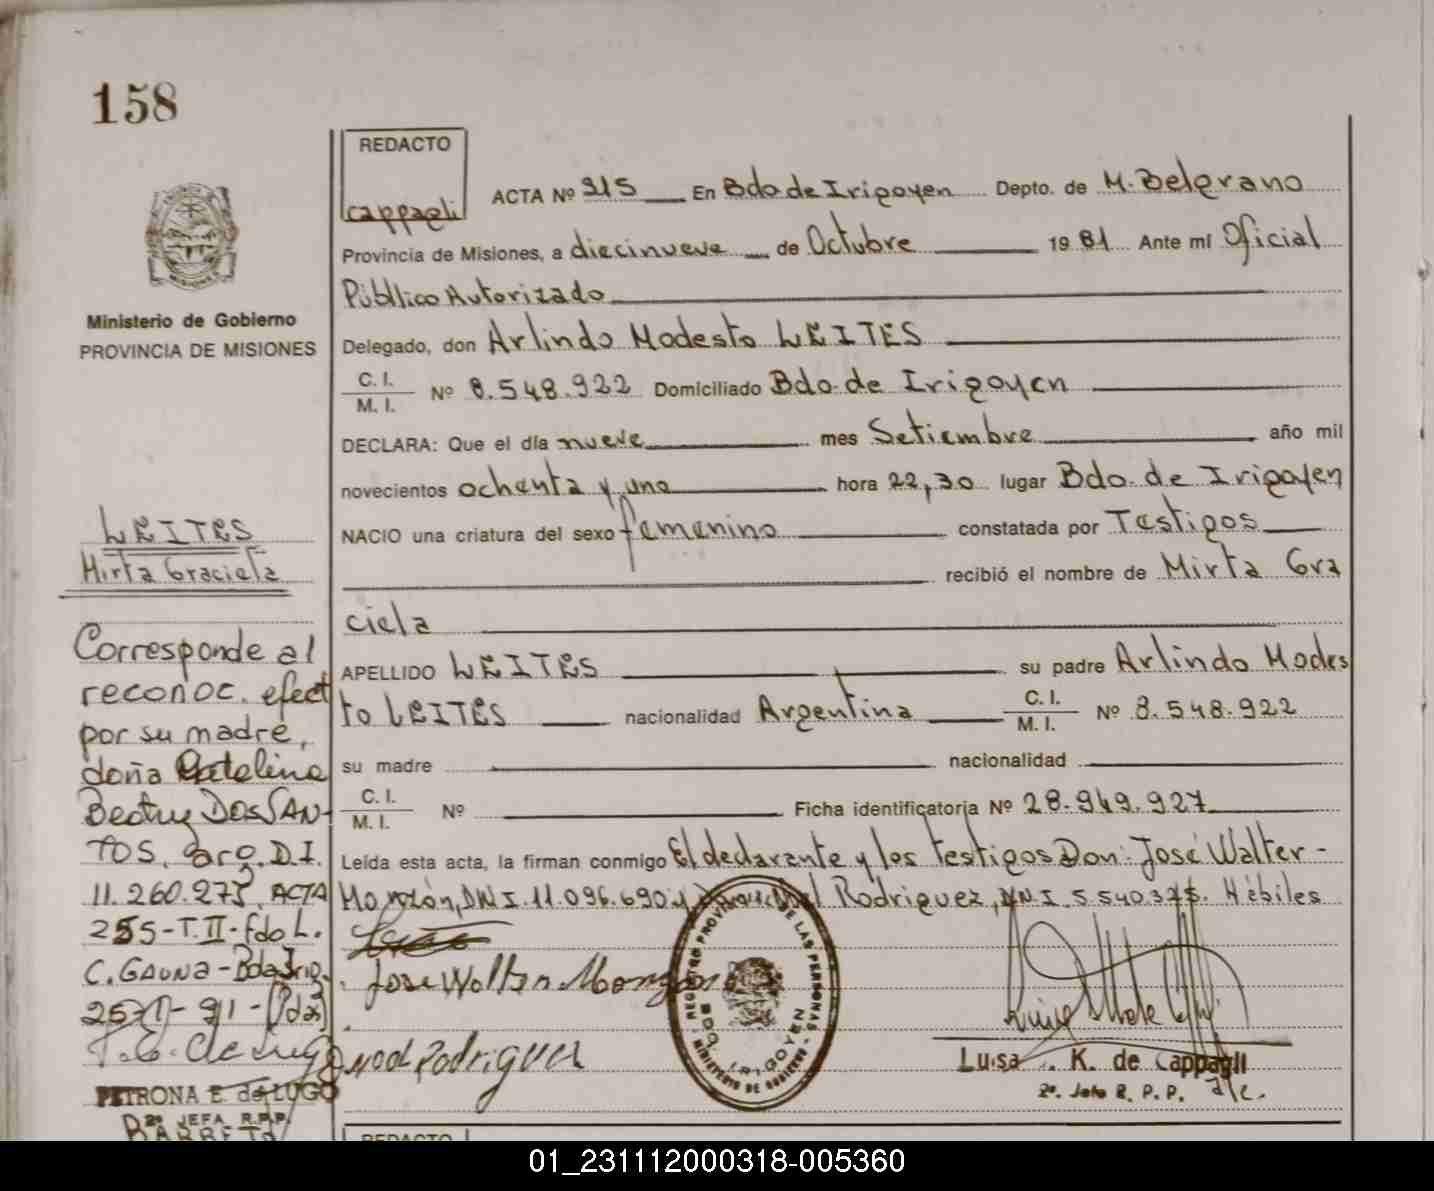 158
REDACTO
cappagli
ACTA Nº 315 En Bdo de Irigoyen Depto. de M. Belgrano
Provincia de Misiones, a diecinueve de Octubre 19 81 Ante mí Oficial
Públlico Autorizado
Ministerio de Gobierno
PROVINCIA DE MISIONES
Delegado, don Arlindo Modesto LEITES
C. I.
M. I.
Nº 8.548.922 Domiciliado Bdo. de Irigoyen
DECLARA: Que el día nueve mes Setiembre año mil
novecientos ochenta y uno hora 22,30 lugar Bdo. de Irigoyen
NACIO una criatura del sexo femenino constatada por Testigos
recibió el nombre de Mirta Gra
ciela
APELLIDO LEITES su padre Arlindo Modes
to LEITES nacionalidad Argentina C. I.
M. I. Nº 8.548.922
su madre nacionalidad
C. I.
M. I.
Nº Ficha identificatoria Nº 28.949.927
Leída esta acta, la firman conmigo El declarante y los testigos Don: José Walter -
Monzón, DNI. 11.096.690 y Rodriguez, DN.I. 5.540.375. Hébiles
LEITES
Mirta Graciela
Corresponde al
reconoc. efect
por su madre,
doña Catalina
Beatriz DOS SAN-
TOS, arg. D.I.
11.260.275, ACTA
255-T.II-Fdo L.
C. GAUNA - Bdo Irig.
25-1-91-
PETRONA E. de LUGO
2ª JEFA R.P.P.
Jose Walter Monzon
Rodriguez
REGISTRO PROVINCIAL DE LAS PERSONAS
MINISTERIO DE GOBIERNO
BDO. IRIGOYEN
Luisa K. de Cappagli
2ª. Jefe R. P. P. a/c.
REDACTO
01_231112000318-005360